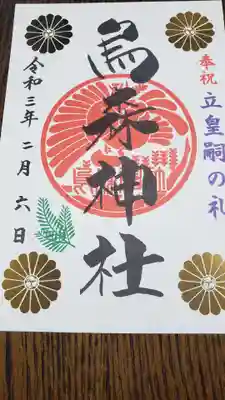 奉祝 立皇嗣の礼
烏森神社
令和三年二月六日